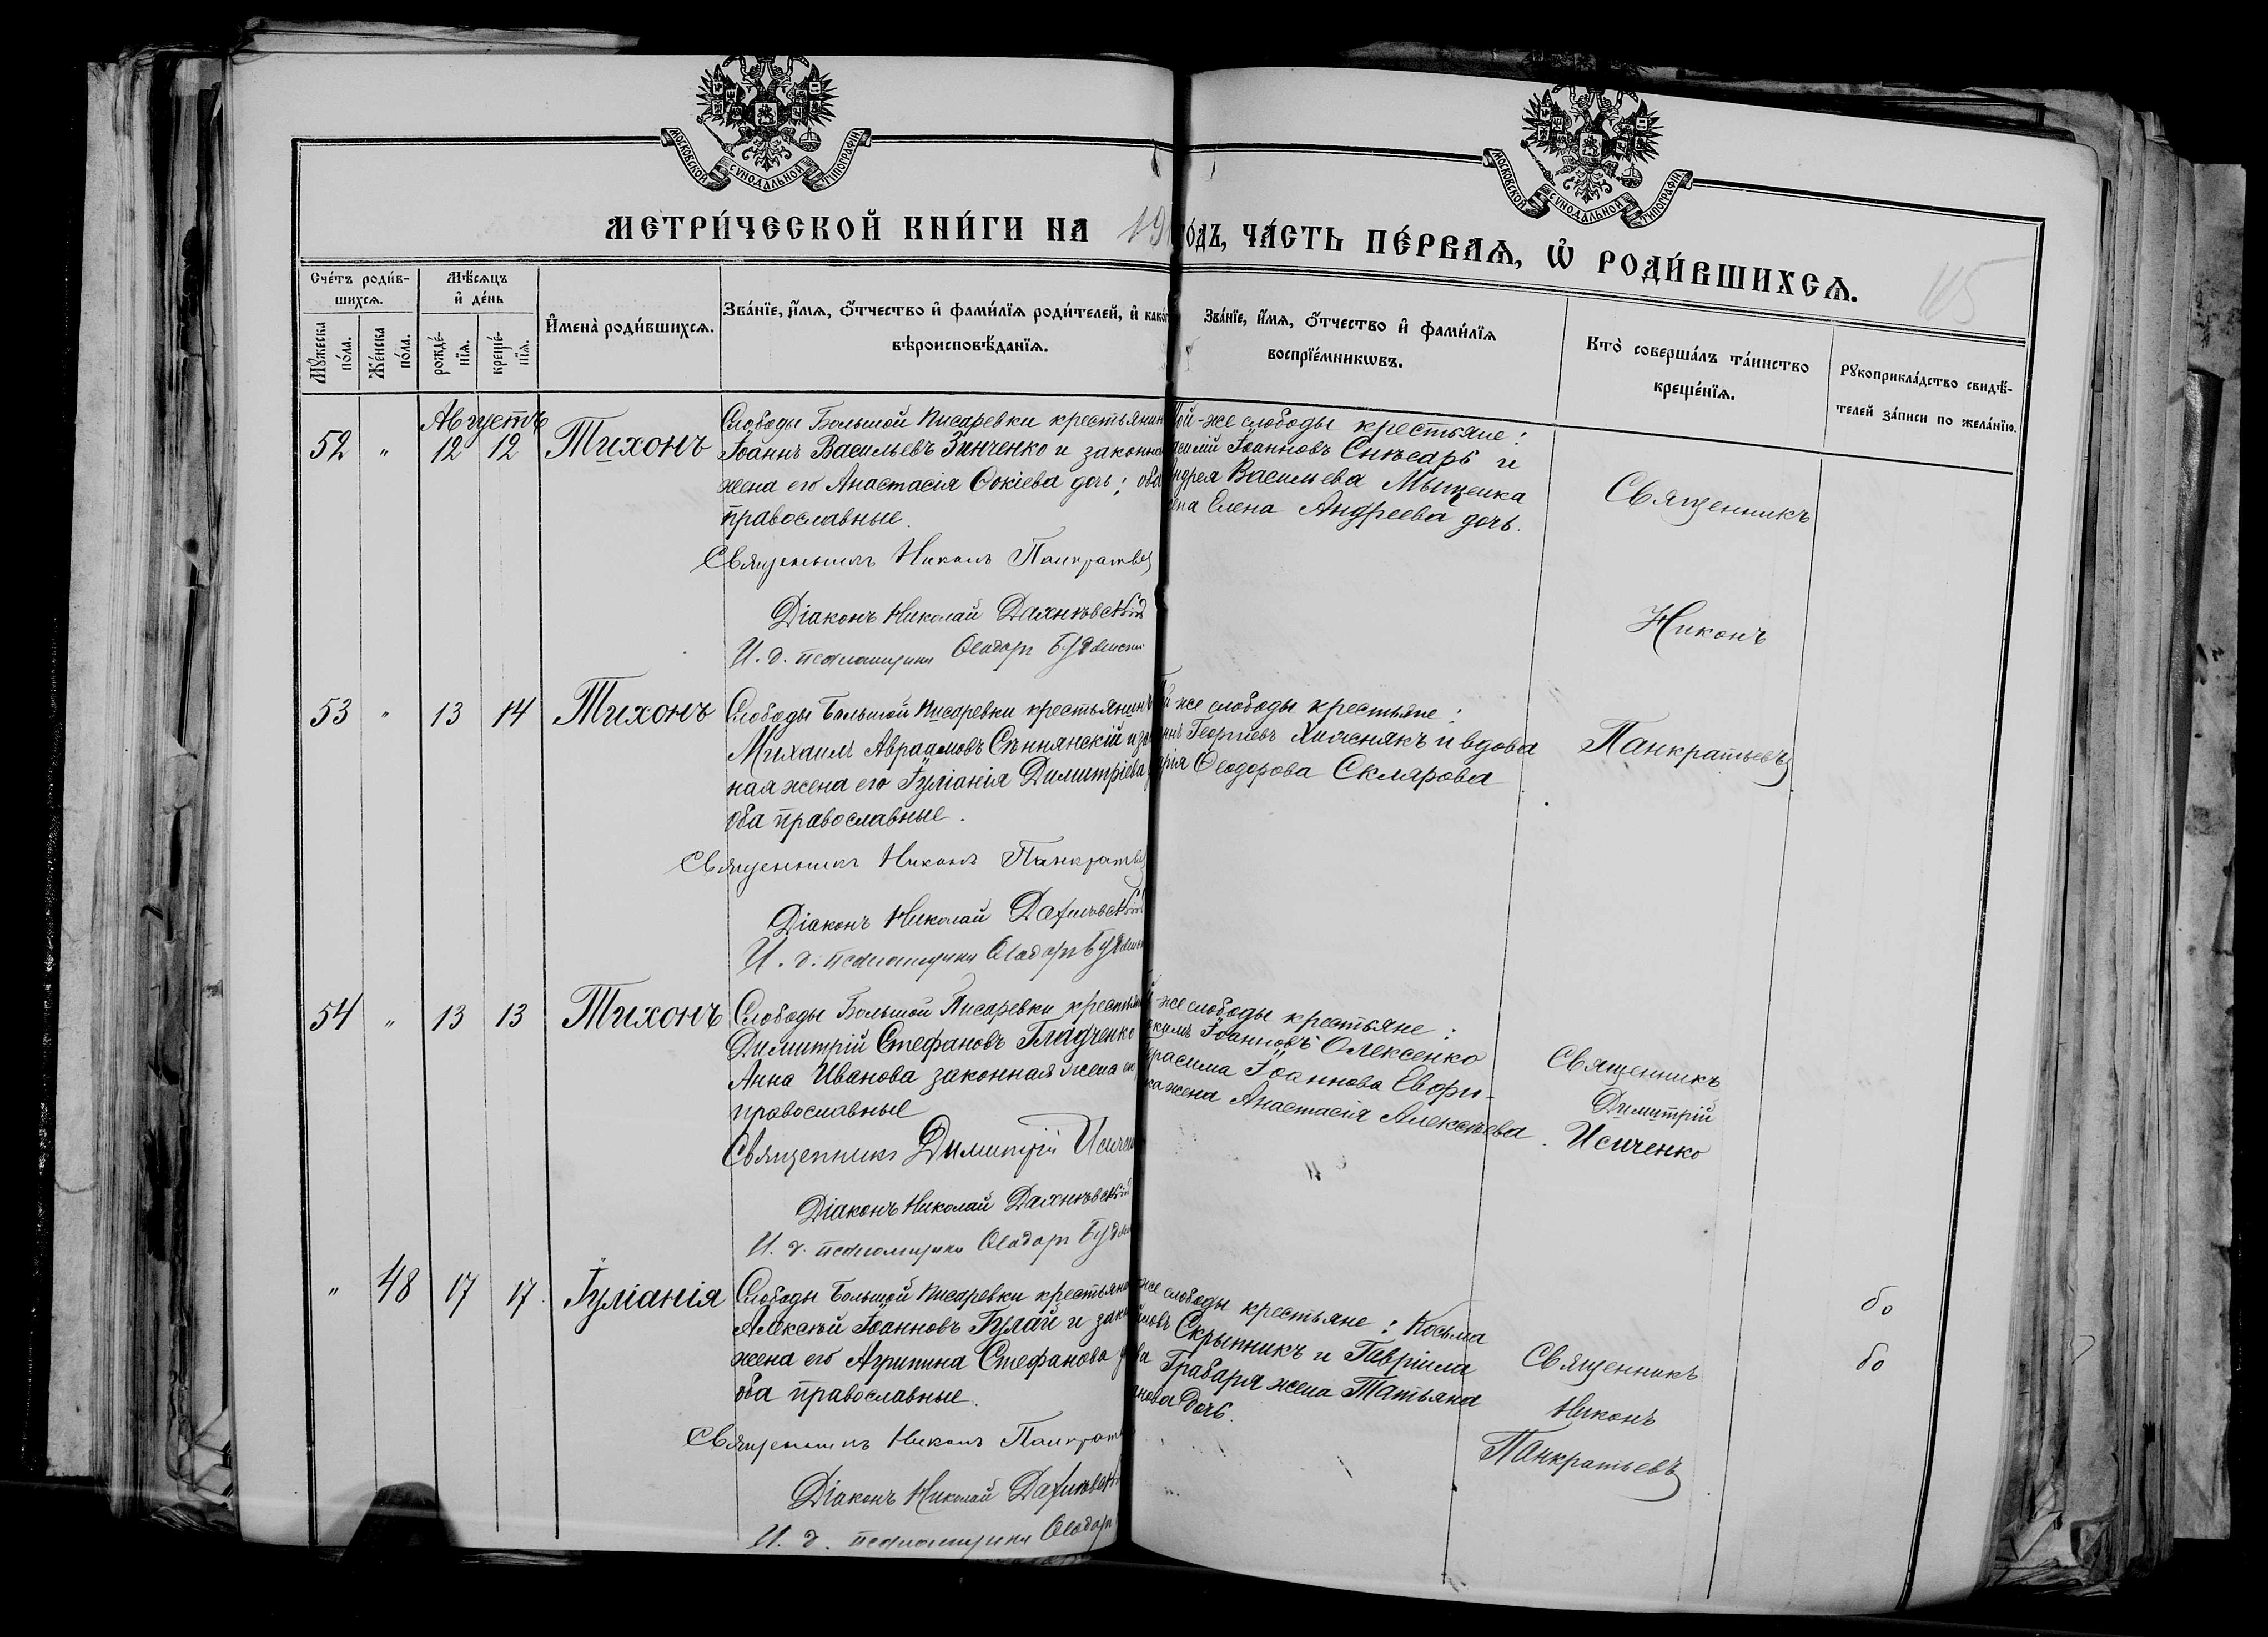 МОСКОВСКОЙ СѴНОДАЛЬНОЙ ТИПОГРАФІИ
МОСКОВСКОЙ СѴНОДАЛЬНОЙ ТИПОГРАФІИ
МЕТРИ́ЧЕСКОЙ КНИ́ГИ НА 19
ГО́ДЪ, ЧА́СТЬ ПЕ́РВАѦ, Ѡ҆ РОДИ́ВШИХСѦ.
Сче́тъ роди́в-
шихсѧ.
Мѣ́сѧцъ
и҆ де́нь
Мꙋ́жеска
по́ла.
Же́нска
по́ла.
рожде́-
нїѧ.
креще́-
нїѧ.
И҆мена̀ роди́вшихсѧ.
Зва́нїе, и҆́мѧ, ѻ҆́тчество и҆ фами́лїѧ роди́телей, и҆ како́г
вѣроисповѣ́данїѧ.
Зва́нїе, и҆́мѧ, ѻ҆́тчество и҆ фами́лїѧ
воспрїе́мникѡвъ.
Кто̀ соверша́лъ та́инство
креще́нїѧ.
Рꙋкоприкла́дство свидѣ́-
телей за́писи по жела́нїю.
Августъ
52 " 12 12 Тихонъ
Слободы Большой Писаревки крестьянин
Іоаннъ Васильевъ Зинченко и законная
жена его Анастасія Фокіева дочь; оба
православные.
Священникъ Никонъ Панкратьев
Діаконъ Николай
И. д. псаломщика Ѳеодоръ
Той-же слободы крестьяне:
Василій Іоанновъ Снѣсарь и
Андрея Васильева Мыценка
жена Елена Андреева дочь.
Священникъ
Никонъ
Панкратьевъ
53 " 13 14 Тихонъ
Слободы Большой Писаревки крестьянинъ
Михаилъ Авраамовъ Сѣннянскій и за
ная жена его Іуліанія Димитріева
оба православные.
Священникъ Никонъ Панкратьев
Діаконъ Николай
И. д. псаломщика Ѳеодоръ
й же слободы крестьяне:
Георгіевъ Хижнякъ и вдова
Ѳеодорова Склярова
54 " 13 13 Тихонъ
Слободы Большой Писаревки крестьян
Димитрій Стефановъ Гладченко
Анна Иванова законная жена его
православные
Священникъ Димитрій Исичен
Діаконъ Николай
И. д. псаломщика Ѳеодоръ
й-же слободы крестьяне:
кимъ Іоанновъ Олексенко
расима Іоаннова Евфи-
ка жена Анастасія Алексѣева.
Священникъ
Димитрій
Исиченко
" 48 17 17 Іуліанія
Слободы Большой Писаревки крестьяни
Алексѣй Іоанновъ Гулай и зако
жена его Агрипина Стефанова
оба православные.
Священникъ Никонъ Панкрать
Діаконъ Николай
И. д. псаломщика Ѳеодоръ
же слободы крестьяне: Косьма
Скрыпникъ и Гавріила
ва Грабаря жена Татьяна
нова дочь.
Священникъ
Никонъ
Панкратьевъ